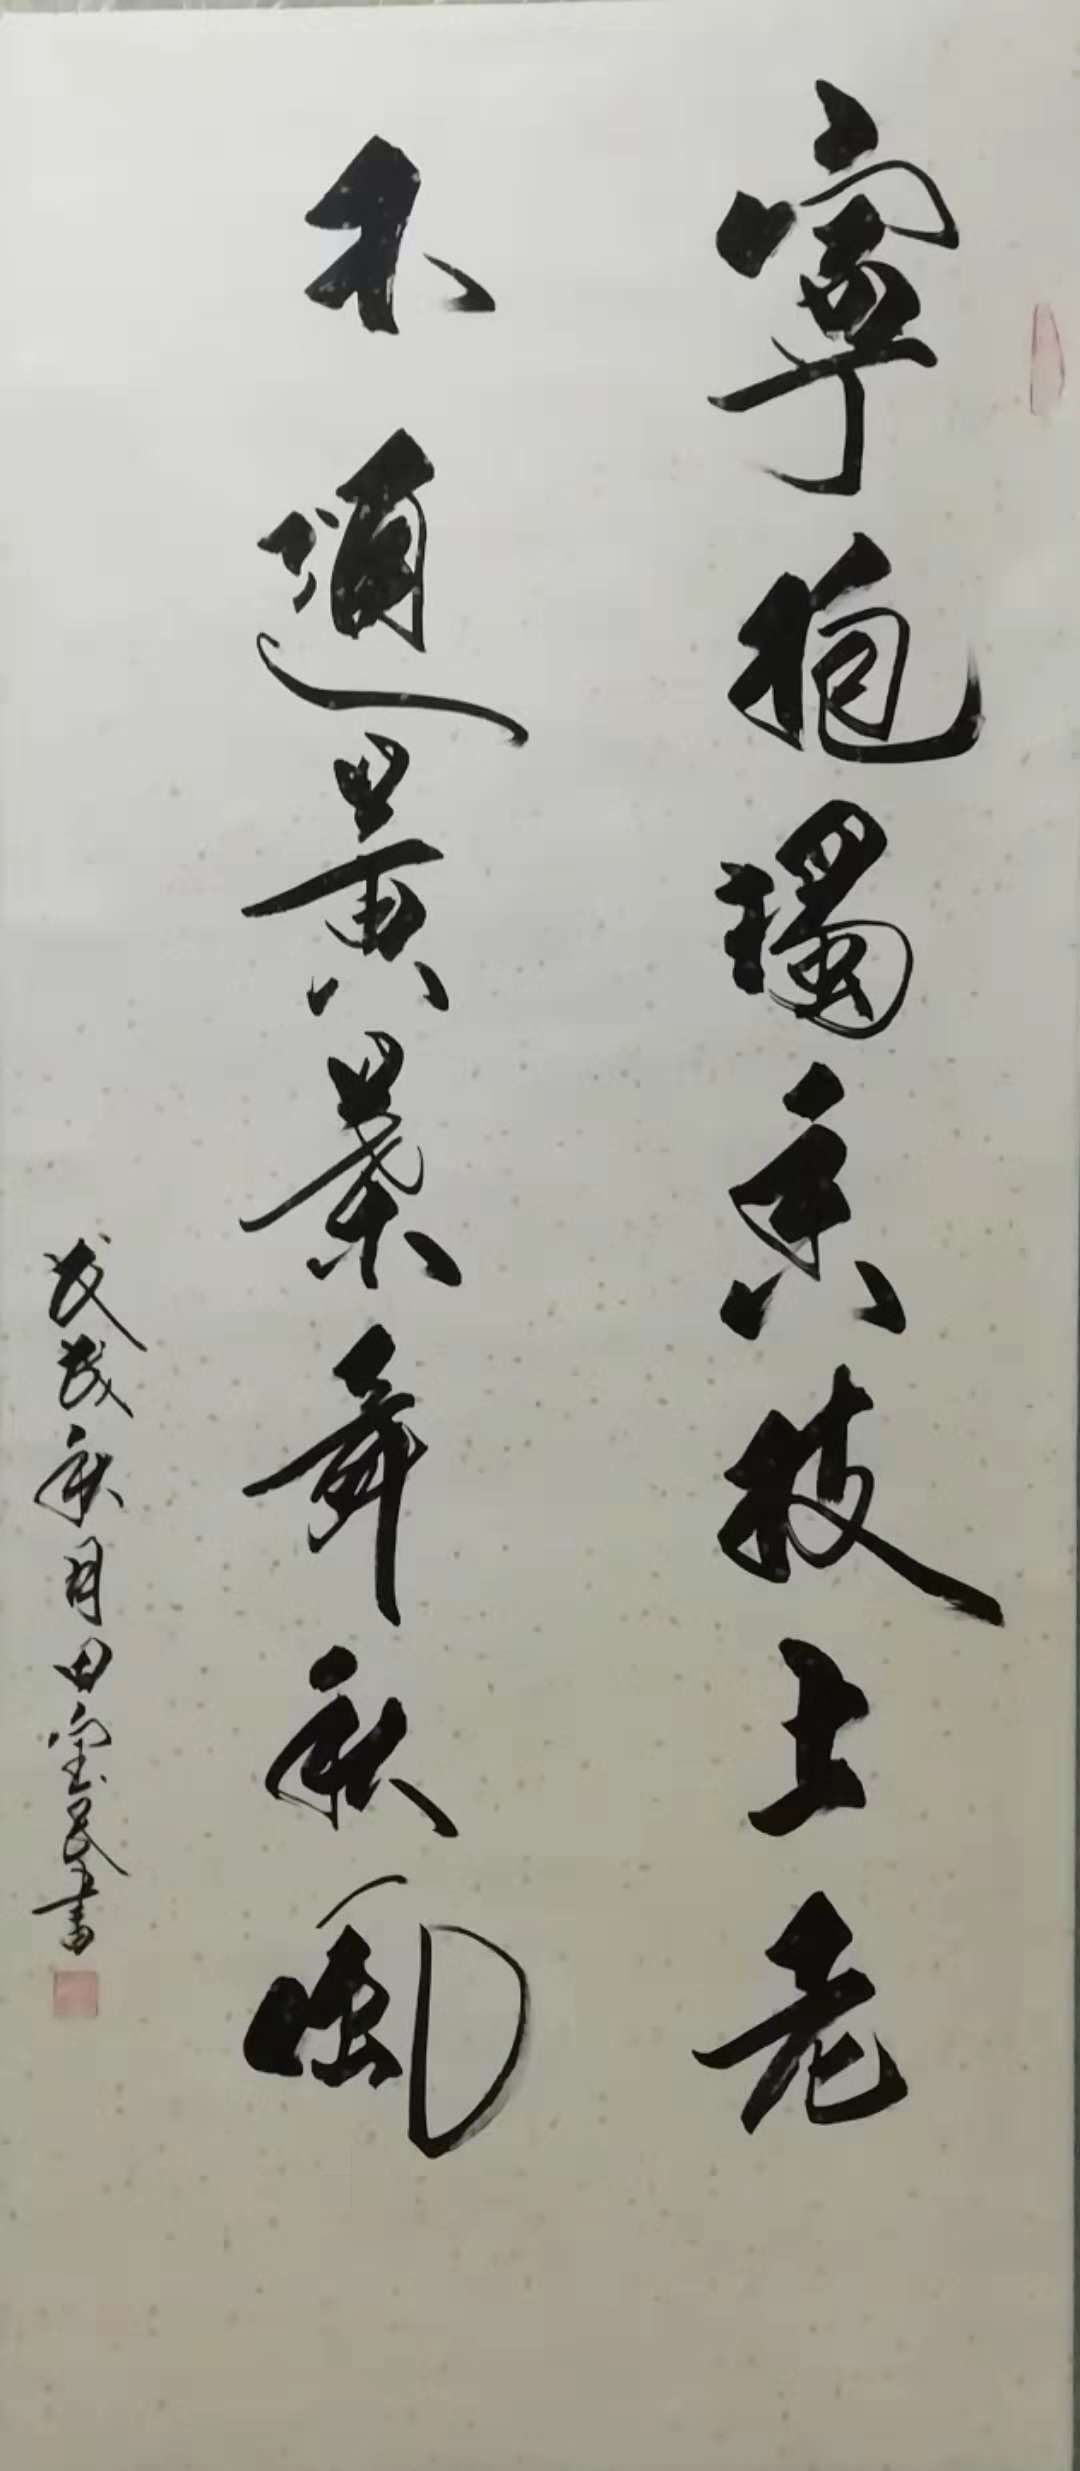 寧抱獨香枝上老
不随黄葉舞秋風
戊戌秋月田宝民書